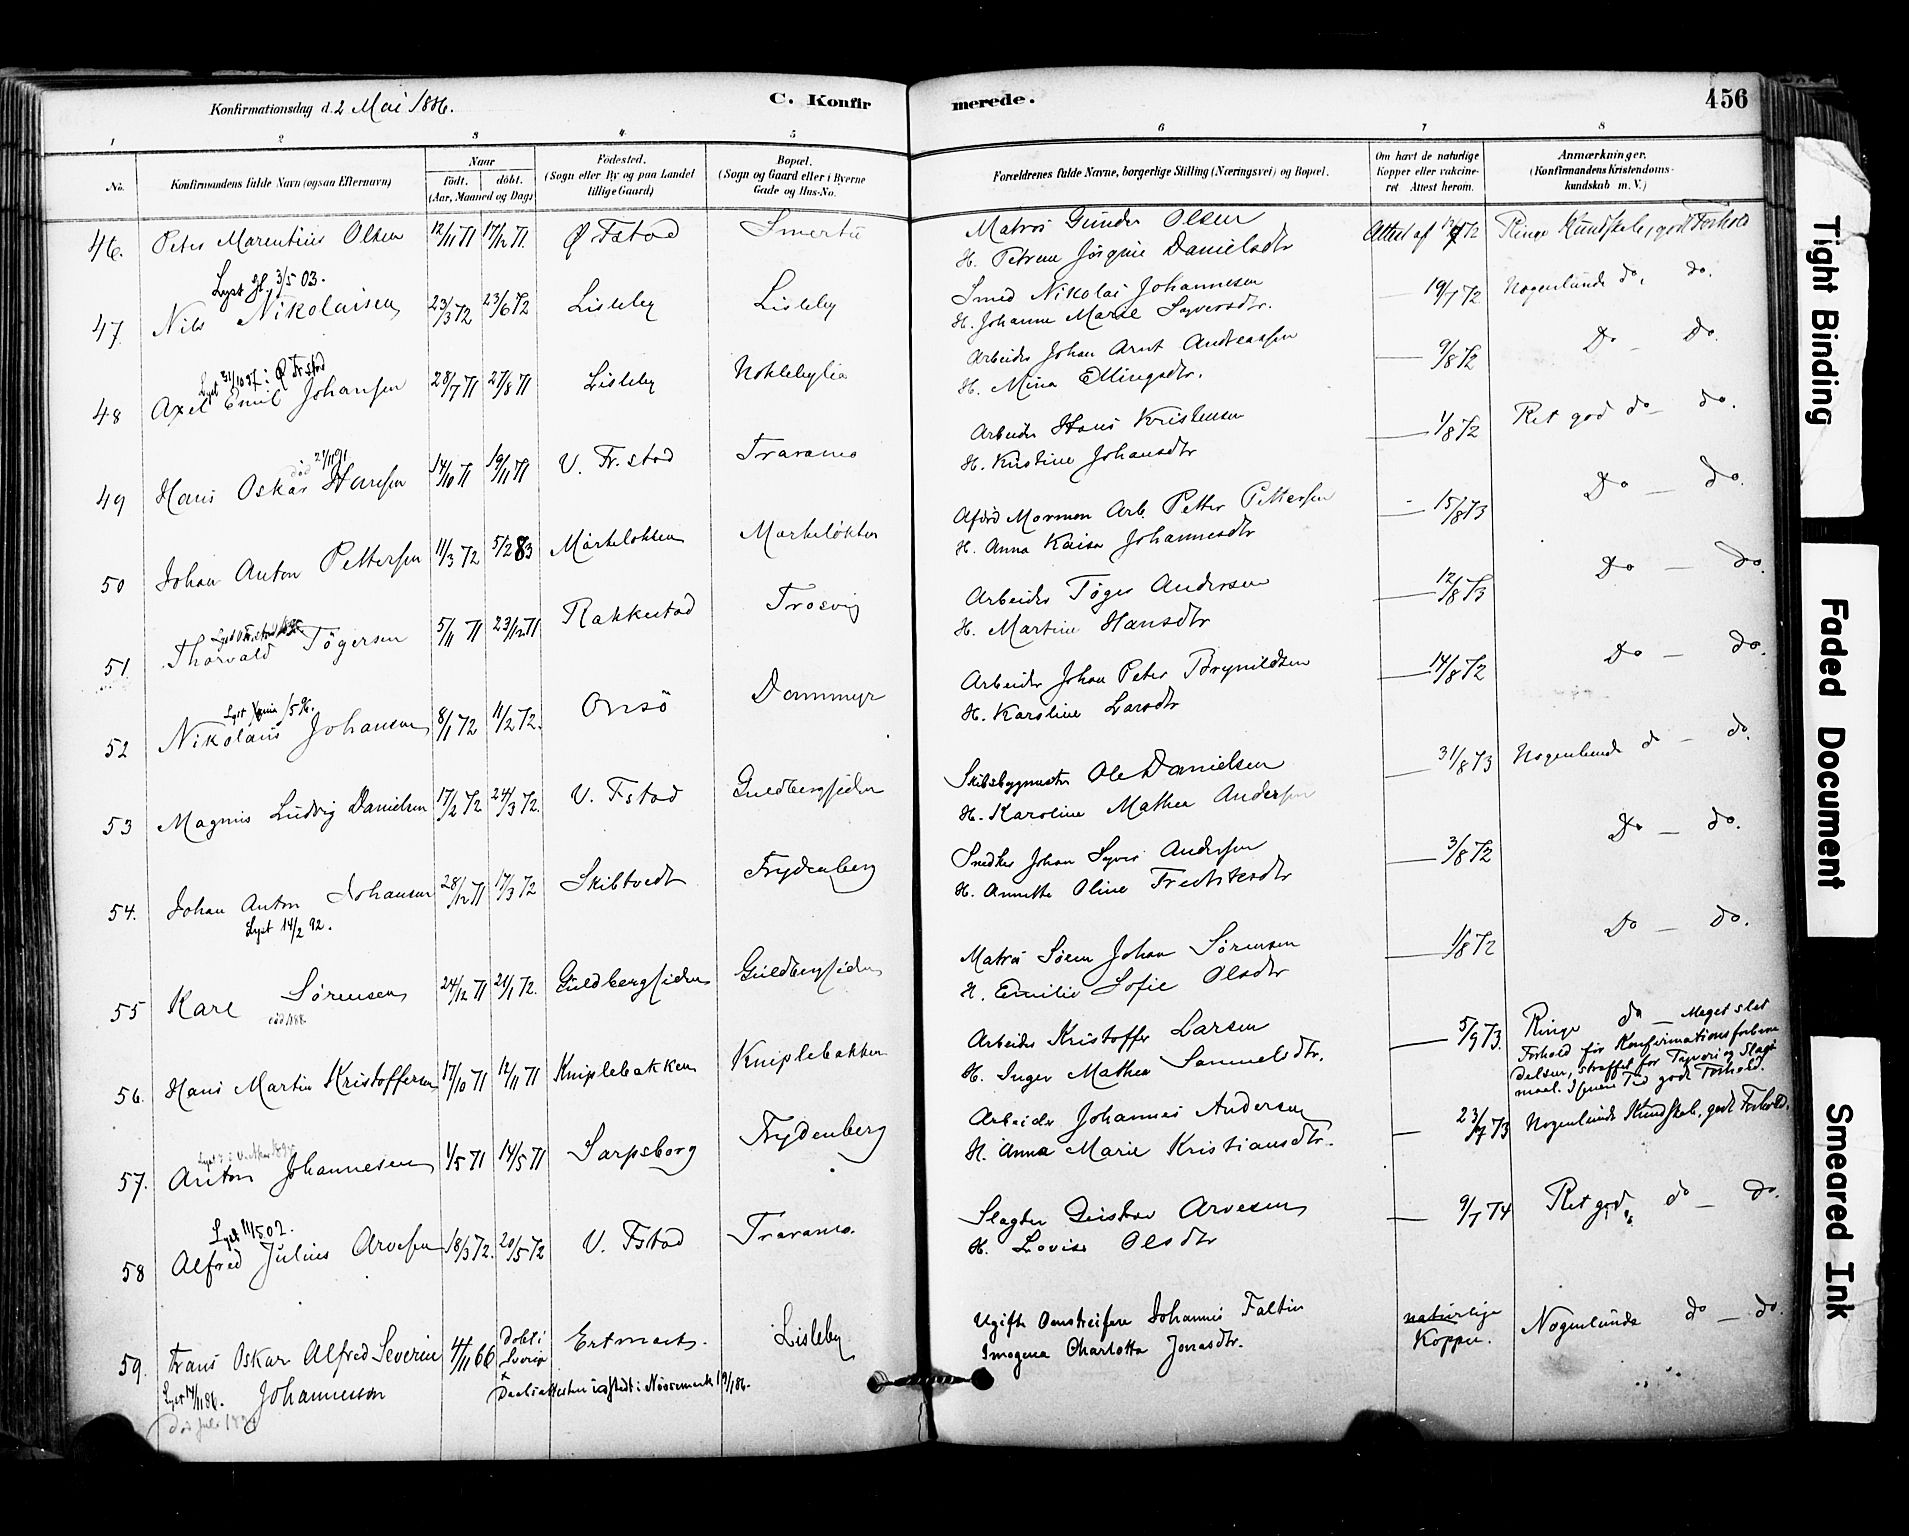 Konfirmationsdag d. 2 Mai 1886.
C. Konfir
merede.
456
1 2 3 4 5 6 7 8
No.
Konfirmandens fulde Navn (ogsaa Efternavn)
Naar
født. døbt.
(Aar, Maaned og Dag)
Fødested.
(Sogn eller By og paa Landet
tillige Gaard)
Bopæl.
(Sogn og Gaard eller i Byerne
Gade og Hus-No.
Forældrenes fulde Navne, borgerlige Stilling (Næringsvei) og Bopæl.
Om havt de naturlige
Kopper eller vakcine-
ret Attest herom.
Anmærkninger.
(Konfirmandens Kristendoms-
kundskab m. V.)
46. Peter Marentius Olsen 12/11 71 17/12 71. Ø Fstad Smertu Matros Gunder Olsen Attest af 72 Ringe Kundskab, godt Forhold
H. Petrine Jørgine Danielsdtr
Lyst 3/5 03.
47 Nils Nikolaisen 23/3 72 23/6 72 Lisleby Lisleby Smed Nikolai Johannesen 19/7 72 Nogenlunde do, do.
H. Johanne Marie Syversdtr.
Lyst 31/10 97 i Ø Fr.stad
48 Axel Emil Johansen 28/7 71 27/8 71 Lisleby Nøklebylia Arbeider Johan Arnt Andreassen 9/8 72 Do - Do.
H. Mina Ellingsdtr.
død
49 Hans Oskar Hansen 14/10 71 19/11 71 V. Fr.stad Traramo Arbeider Hans Kristensen 1/8 72 Ret god do - do.
H. Kristine Johansdtr
50 Johan Anton Pettersen 11/3 72 5/2 83 Mørkeløkken Mørkeløkken Afsørd Mormon Arb. Petter Pettersen 15/8 73 Do - Do.
H. Anna Kaisa Johannesdtr
51 Thorvald Tøgersen 5/11 71 23/12 71 Rakkestad Trosvig Arbeider Tøger Andersen 12/8 73 Do - Do.
H. Martine Hansdtr
52 Nikolaus Johansen 8/1 72 11/2 72. Onsö Dammyr Arbeider Johan Peter Brynildsen 14/8 72 Do - Do.
H. Karoline Larsdtr
53 Magnus Ludvig Danielsen 17/2 72 24/3 72. V. Fstad Guldbergsiden Skibsbygmester Ole Danielsen 31/8 73 Nogenlunde do - do.
H. Karoline Mathea Andersen
54. Johan Anton Johansen 28/12 71 17/3 72 Skibtvedt Frydenberg Snedker Johan Syver Andersen 3/8 72 Do - do.
Lyst 14/2 92. H. Annette Oline Fredriksdtr
55 Karl Sørensen 24/12 71 21/1 72. Guldbergsiden Guldbergsiden Matros Søren Johan Sørensen 1/8 72 Do - Do.
H. Emilie Sofie Olsdtr
56. Hans Martin Kristoffersen 17/10 71 12/11 71 Kniplebakken Kniplebakken Arbeider Kristoffer Larsen 5/9 73. Ringe do - Meget slet
H. Inger Mathea Samuelsdtr. Forhold før Konfirmationsforbere
delsen, straffet for Tyveri og Slags
maal. I senere Tid godt Forhold.
57. Anton Johannesen 1/5 71 14/5 71 Sarpsborg Frydenberg Arbeider Johannes Andersen 23/7 73 Nogenlunde Kundskab, godt Forhold.
H. Anna Marie Kristiansdtr.
Lyst 11/5 02.
58 Alfred Julius Arvesen 18/3 72. 20/5 72 V. Fstad Traramo. Slagter Gustav Arvesen 9/7 74 Ret god, do - do.
H. Lovise Olsdtr
59. Frans Oskar Alfred Severin 4/11 66 Døbt i Sverige Ertmark. Lisleby Ugift Omstreifere Johannes Faltin naturlige Nogenlunde do - do.
Johannesson Imogena Charlotta Jonasdtr. Kopper.
Lyst 14/11 86. Daabsattesten udstedt i Nössemark 19/1 86.
Død Juli
Tight Binding
Faded Document
Smeared Ink